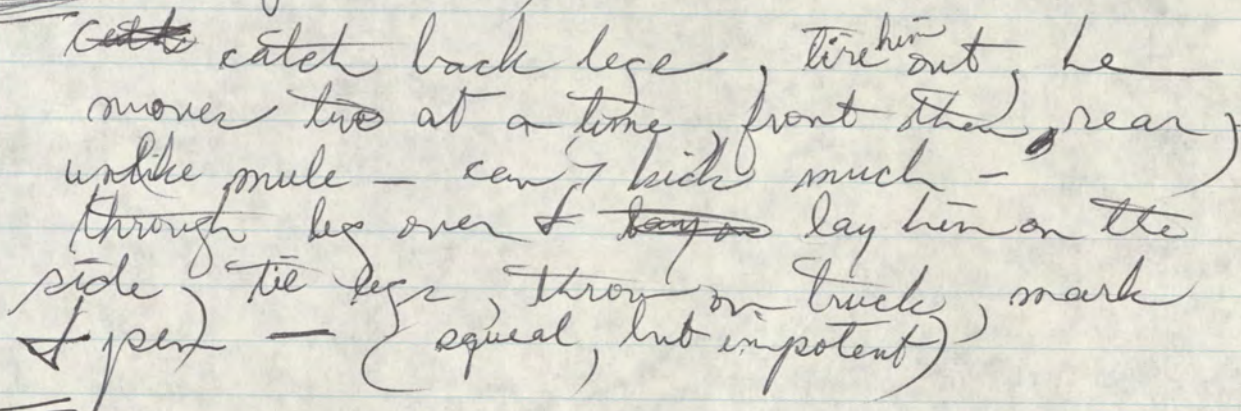 catch back legs, tire him out, he
moves two at a time, front then, rear,
unlike mule - can't kick much -
through leg over & lay him on the
side, tie legs, throw on truck, mark
& pen - (squeal, but impotent)